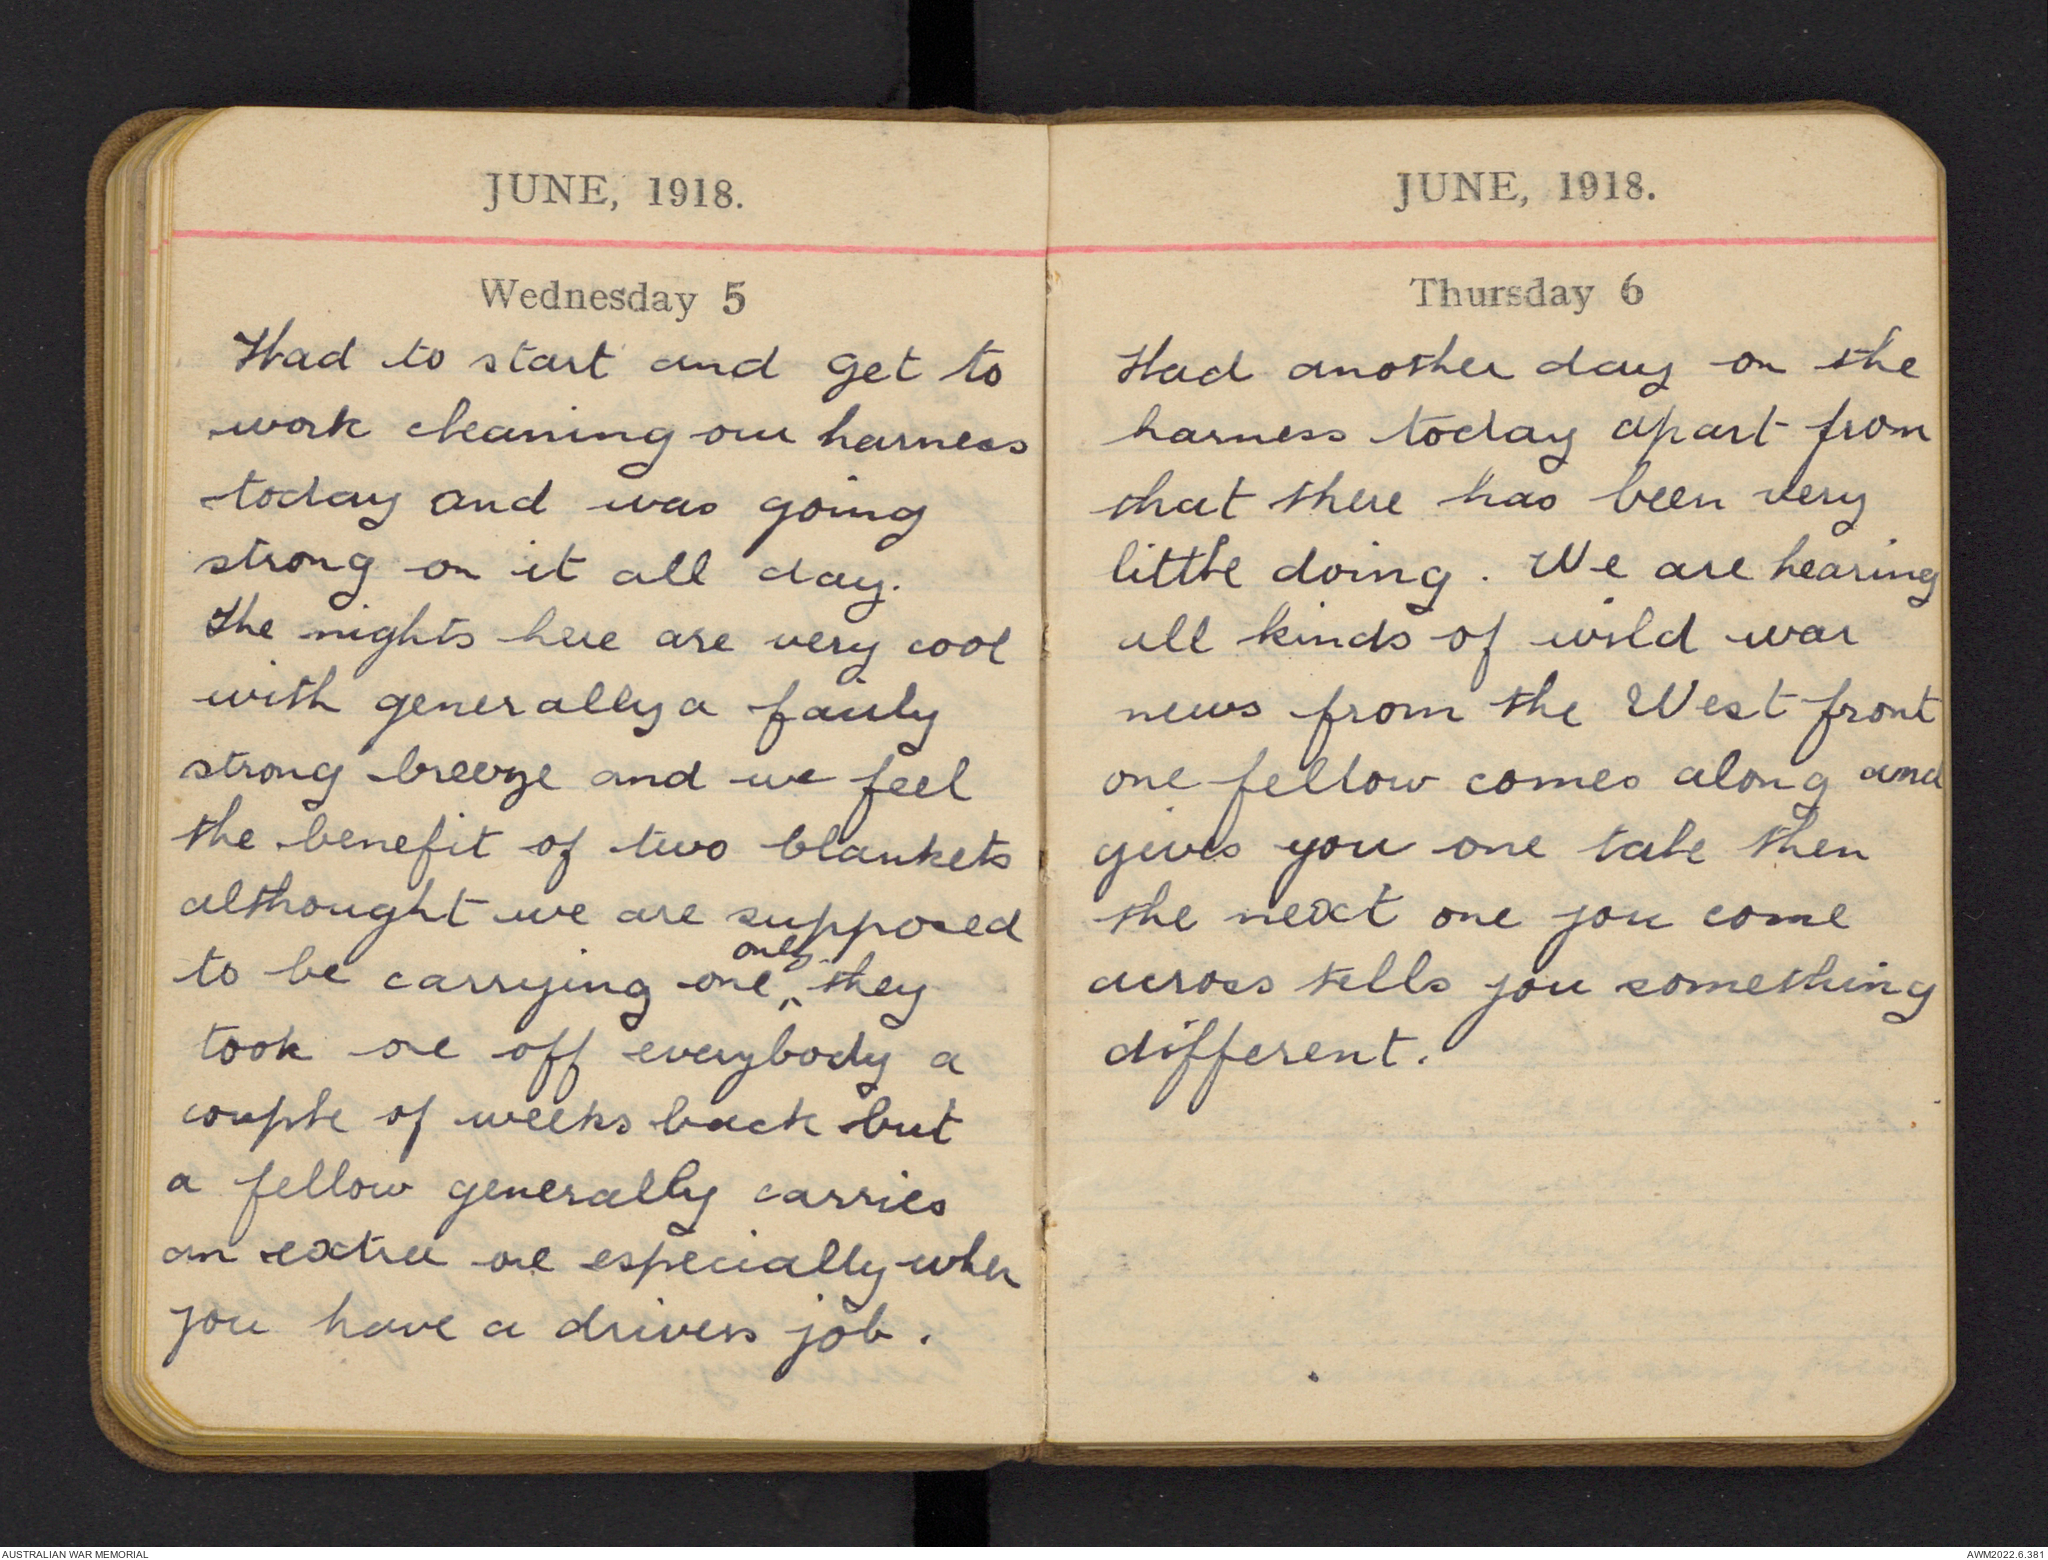 JUNE, 1918.
Wednesday 5
Had to start and get to
work cleaning our harness
today and was going
strong on it all day.
The nights here are very cool
with generally a fairly
strong breeze and we feel
the benefit of two blankets
althought we are supposed
only
to be carrying one, ^ they
took one off everybody a
couple of weeks back but
a fellow generally carries
an extra one especially when
you have a drivers job.
JUNE, 1918.
Thursday 6
Had another day on the
harness today apart from
that there has been very
little doing. We are hearing
all kinds of wild war
news from the West front
one fellow comes along and
gives you one tale then
the next one you come
across tells you something
different.
AUSTRALIAN WAR MEMORIAL
AWM2022.6.381